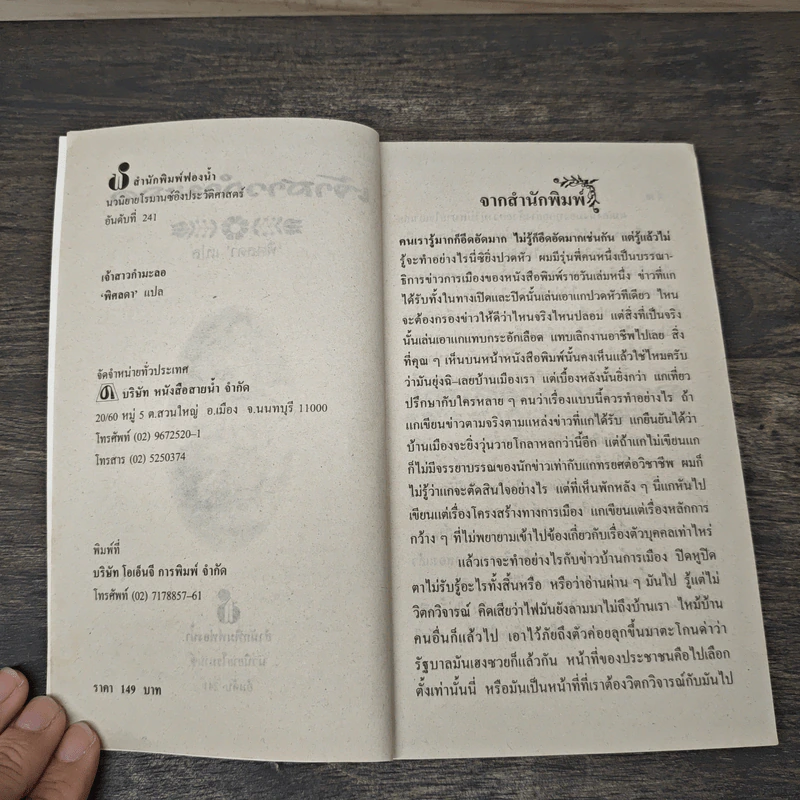 สำนักพิมพ์ฟองน้ำ
นวนิยายโรมานซ์อิงประวัติศาสตร์
อันดับที่ 241
เจ้าสาวกำมะลอ
‘พิศลดา’ แปล
จัดจำหน่ายทั่วประเทศ
บริษัท หนังสือสายน้ำ จำกัด
20/60 หมู่ 5 ต.สวนใหญ่ อ.เมือง จ.นนทบุรี 11000
โทรศัพท์ (02) 9672520-1
โทรสาร (02) 5250374
พิมพ์ที่
บริษัท โอเอ็นจี การพิมพ์ จำกัด
โทรศัพท์ (02) 7178857-61
ราคา 149 บาท
จากสำนักพิมพ์
คนเรารู้มากก็อึดอัดมาก ไม่รู้ก็อึดอัดมากเช่นกัน แต่รู้แล้วไม่
รู้จะทำอย่างไรนี่ซิยิ่งปวดหัว ผมมีรุ่นพี่คนหนึ่งเป็นบรรณา-
ธิการข่าวการเมืองของหนังสือพิมพ์รายวันเล่มหนึ่ง ข่าวที่แก
ได้รับทั้งในทางเปิดและปิดนั้นเล่นเอาแกปวดหัวทีเดียว ไหน
จะต้องกรองข่าวให้ดีว่าไหนจริงไหนปลอม แต่สิ่งที่เป็นจริง
นั้นเล่นเอาแกแทบกระอักเลือด แทบเลิกงานอาชีพไปเลย สิ่ง
ที่คุณ ๆ เห็นบนหน้าหนังสือพิมพ์นั้นคงเห็นแล้วใช่ไหมครับ
ว่ามันยุ่งฉิ-เลยบ้านเมืองเรา แต่เบื้องหลังนั้นยิ่งกว่า แกเที่ยว
ปรึกษากับใครหลาย ๆ คนว่าเรื่องแบบนี้ควรทำอย่างไร ถ้า
แกเขียนข่าวตามจริงตามแหล่งข่าวที่แกได้รับ แกยืนยันได้ว่า
บ้านเมืองจะยิ่งวุ่นวายโกลาหลกว่านี้อีก แต่ถ้าแกไม่เขียนแก
ก็ไม่มีจรรยาบรรณของนักข่าวเท่ากับแกทรยศต่อวิชาชีพ ผมก็
ไม่รู้ว่าแกจะตัดสินใจอย่างไร แต่ที่เห็นพักหลัง ๆ นี่แกหันไป
เขียนแต่เรื่องโครงสร้างทางการเมือง แกเขียนแต่เรื่องหลักการ
กว้าง ๆ ที่ไม่พยายามเข้าไปข้องเกี่ยวกับเรื่องตัวบุคคลเท่าไหร่
แล้วเราจะทำอย่างไรกับข่าวบ้านการเมือง ปิดหูปิด
ตาไม่รับรู้อะไรทั้งสิ้นหรือ หรือว่าอ่านผ่าน ๆ มันไป รู้แต่ไม่
วิตกวิจารณ์ คิดเสียว่าไฟมันยังลามมาไม่ถึงบ้านเรา ไหม้บ้าน
คนอื่นก็แล้วไป เอาไว้ภัยถึงตัวค่อยลุกขึ้นมาตะโกนด่าว่า
รัฐบาลมันเฮงซวยก็แล้วกัน หน้าที่ของประชาชนคือไปเลือก
ตั้งเท่านั้นนี่ หรือมันเป็นหน้าที่ที่เราต้องวิตกวิจารณ์กับมันไป